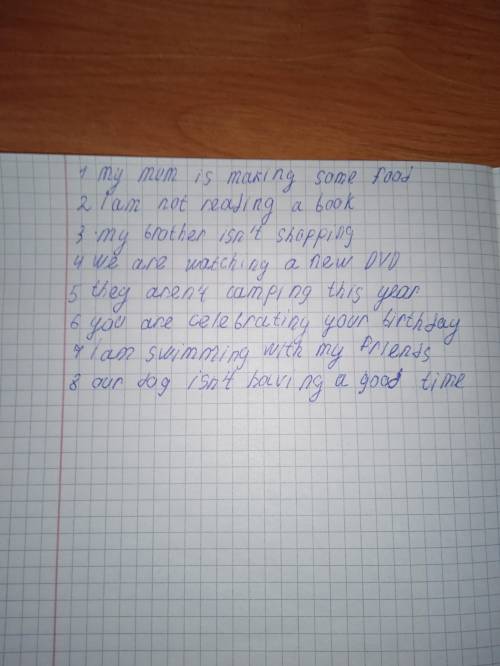 1 my mum is making some food
2 I am not reading a book
3 my brother isn't shopping
4 we are watching a new DVD
5 they aren't camping this year
6 you are celebrating your birthday
7 I am swimming with my friends
8 our dog isn't having a good time